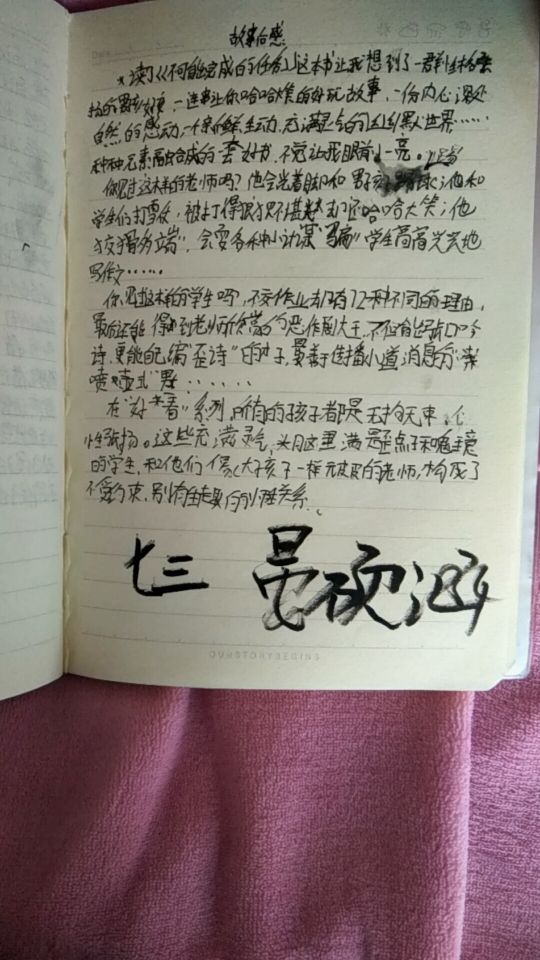 故事后感
Date
读了《不可能完成的任务》这本书让我想到了一群性格张
扬的男孩女孩,一连串让你哈哈大笑的好玩故事,一份内心深处
自然的感动,一个新鲜生动,充满灵气的幽默世界……
种种元素融合成的一套好书,不觉让我眼前一亮。
你见过这样的老师吗?他会光着脚和男孩踢球;他和
学生们打雪仗,被打得狼狈不堪却还哈哈大笑;他
“狡猾多端”,会耍各种小计谋“骗”学生高高兴兴地
写作文……
你见过这样的学生吗,不交作业却有72种不同的理由,
最后还能得到老师的恶作剧大王,不仅能出口吟
诗,更能自己编“歪诗”的才子,最善于传播小道消息的
喷壶式男……
在“好看”系列,所有的孩子都是无拘无束、个
性张扬。这些充满灵气,头脑里满是歪点子和
的学生,和他们像大孩子一样顽皮的老师,构成了
不受约束,别有生趣的师生关系。
七三 晏硕涵
OURSTORYBEGINS